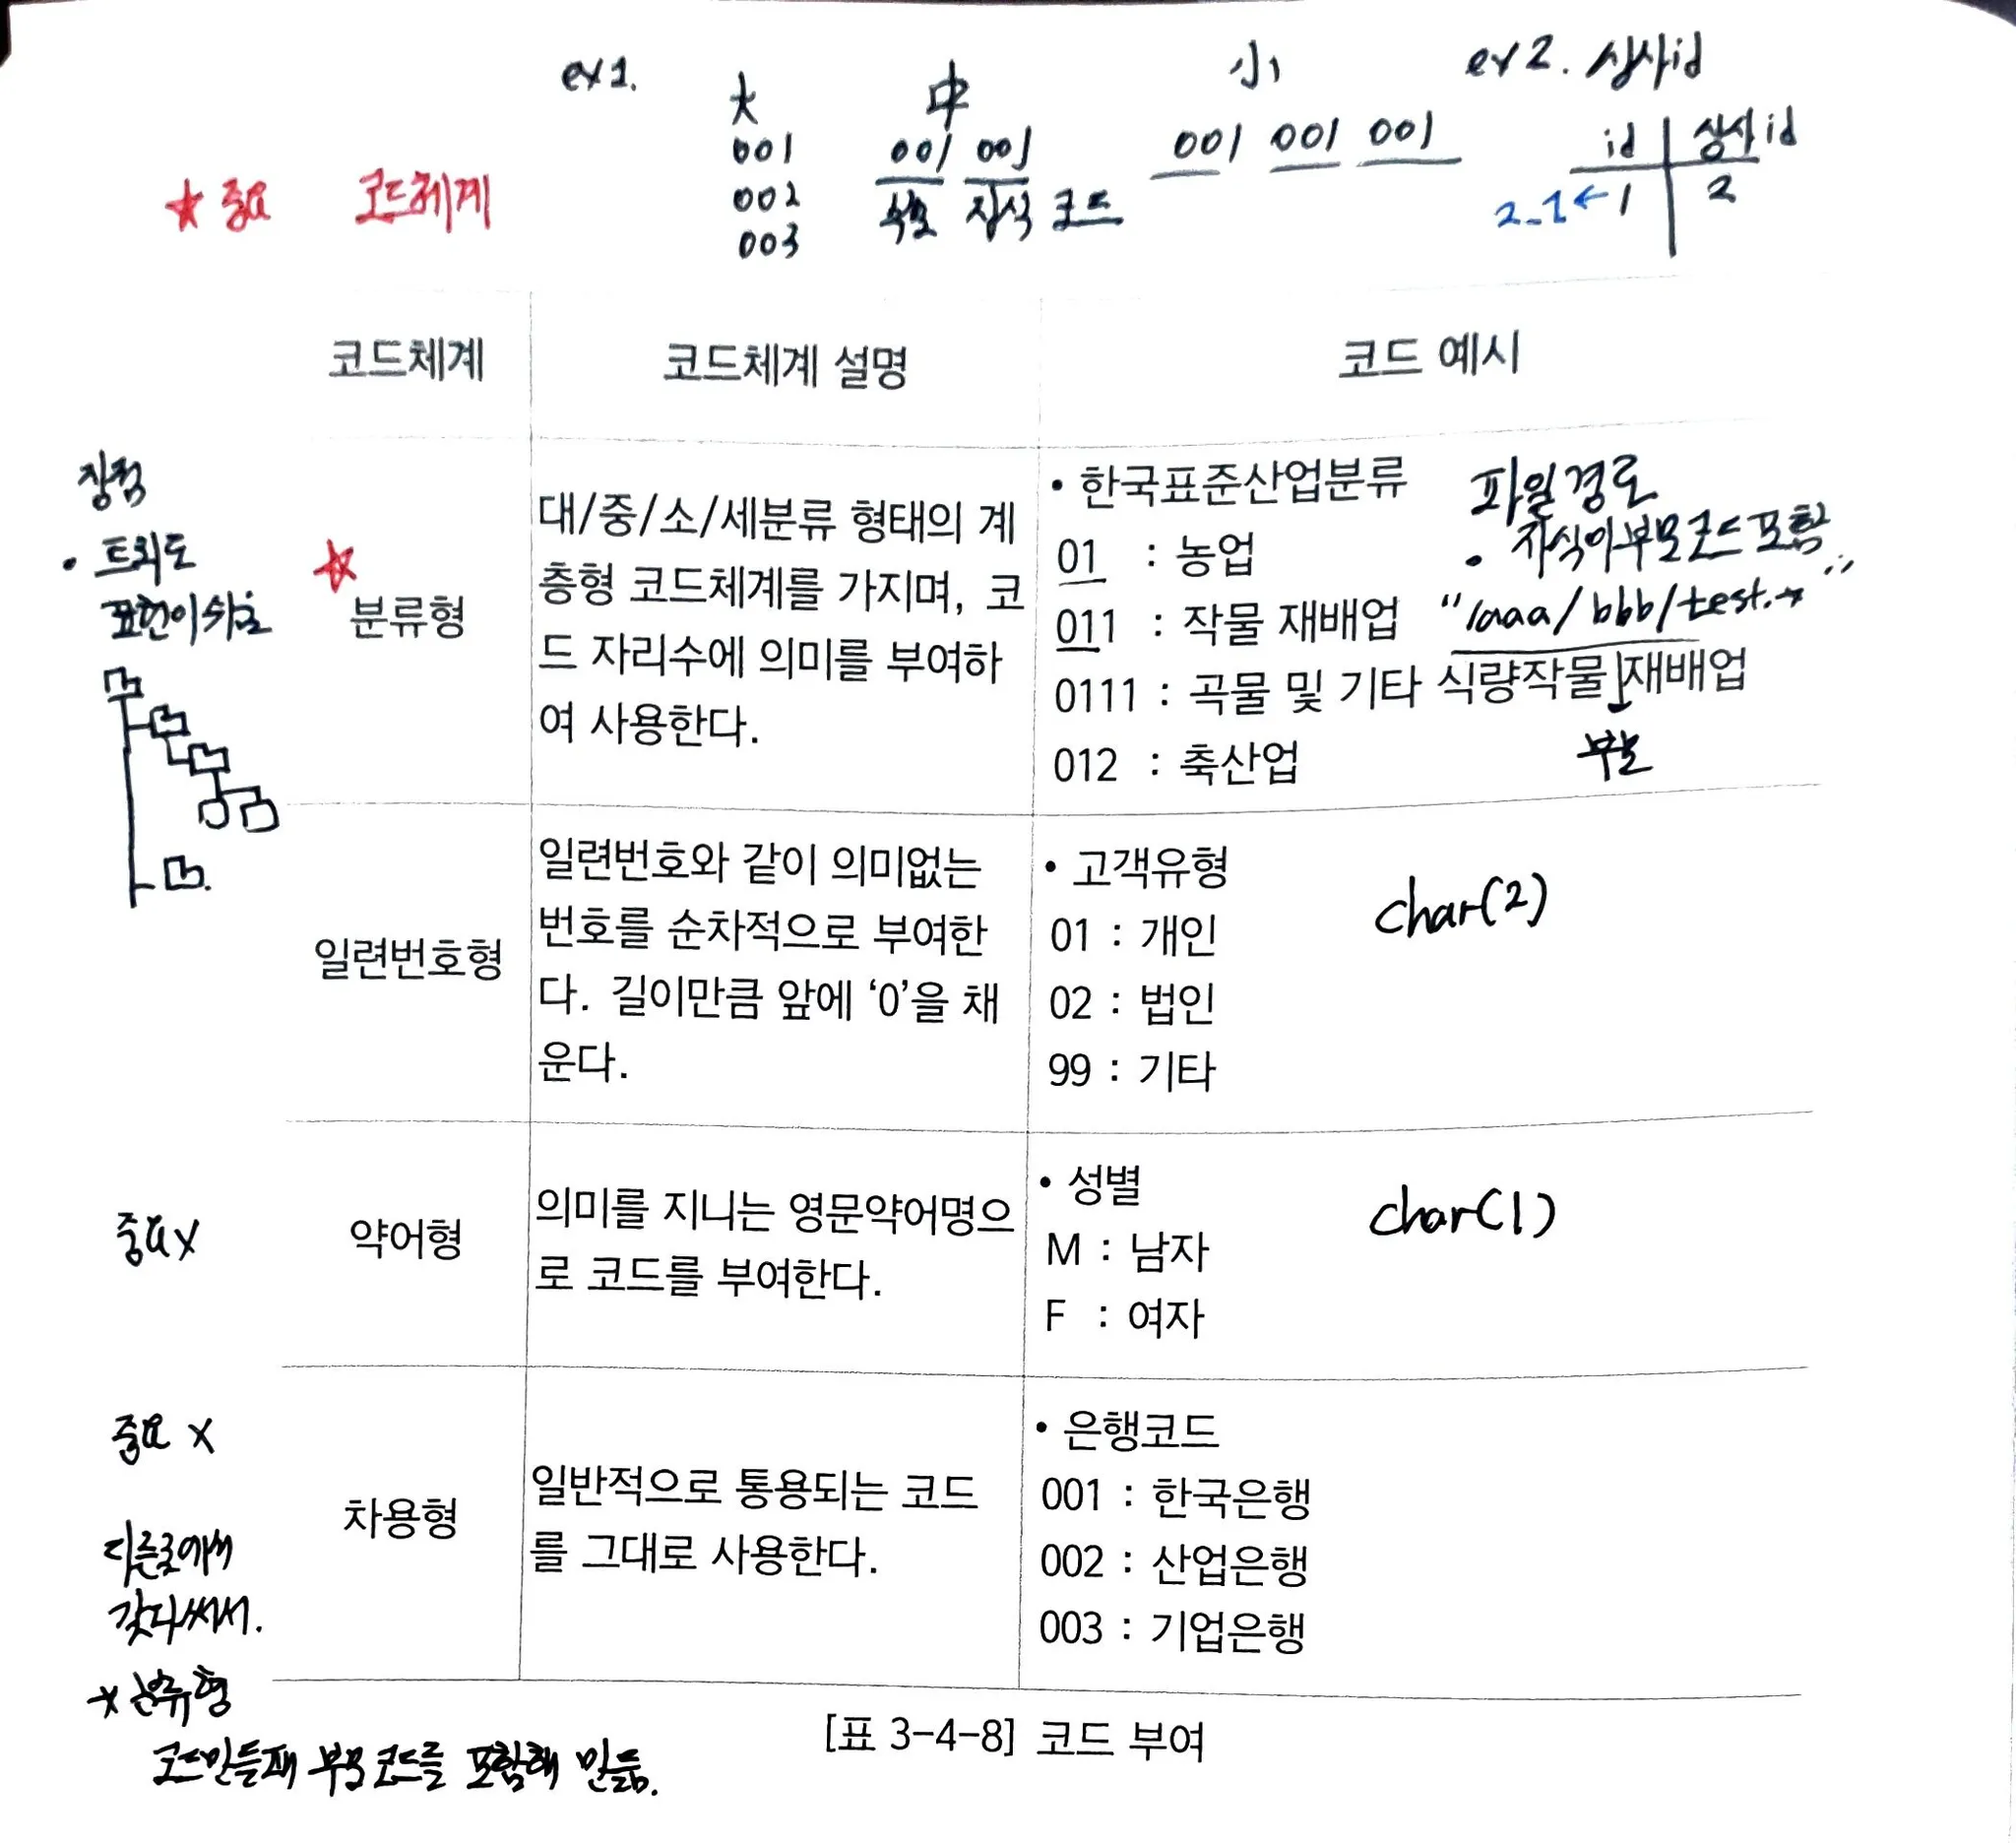 ex1.
大 中 小
ex2. 상사id
001 001 001 001 001 001
id 상사id
★ 중요 코드체계
002 부모 자식 코드
2-1 ← 1 2
003
코드체계 코드체계 설명 코드 예시
장점
• 트리로
표현이 쉬움
★ 분류형
대/중/소/세분류 형태의 계
층형 코드체계를 가지며, 코
드 자리수에 의미를 부여하
여 사용한다.
• 한국표준산업분류
01 : 농업
011 : 작물 재배업
0111 : 곡물 및 기타 식량작물 재배업
012 : 축산업
파일경로
• 자식이 부모코드 포함
"/aaa/bbb/test.*"
부모
일련번호형
일련번호와 같이 의미없는
번호를 순차적으로 부여한
다. 길이만큼 앞에 ‘0’을 채
운다.
• 고객유형
01 : 개인
02 : 법인
99 : 기타
char(2)
중요X
약어형
의미를 지니는 영문약어명으
로 코드를 부여한다.
• 성별
M : 남자
F : 여자
char(1)
중요 X
다른곳에서
갖다써서.
차용형
일반적으로 통용되는 코드
를 그대로 사용한다.
• 은행코드
001 : 한국은행
002 : 산업은행
003 : 기업은행
* 분류형
코드만들때 부모코드를 포함해 만듦.
[표 3-4-8] 코드 부여